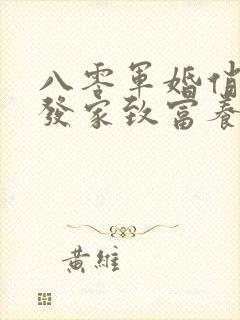 八零軍婚俏
發家致富養
黃維